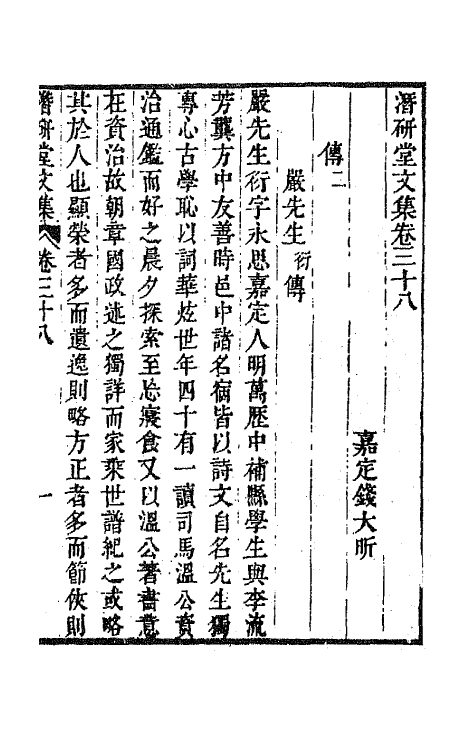 潛研堂文集卷三十八
嘉定錢大昕
傳二
嚴先生衍傳
嚴先生衍字永思嘉定人明萬歷中補縣學生與李流
芳龔方中友善時邑中諸名宿皆以詩文自名先生獨
專心古學恥以詞華炫世年四十有一讀司馬溫公資
治通鑑而好之晨夕探索至忘寢食又以溫公著書意
在資治故朝章國政述之獨詳而家乘世譜紀之或略
其於人也顯榮者多而遺逸則略方正者多而節俠則
潛研堂文集 卷三十八 一